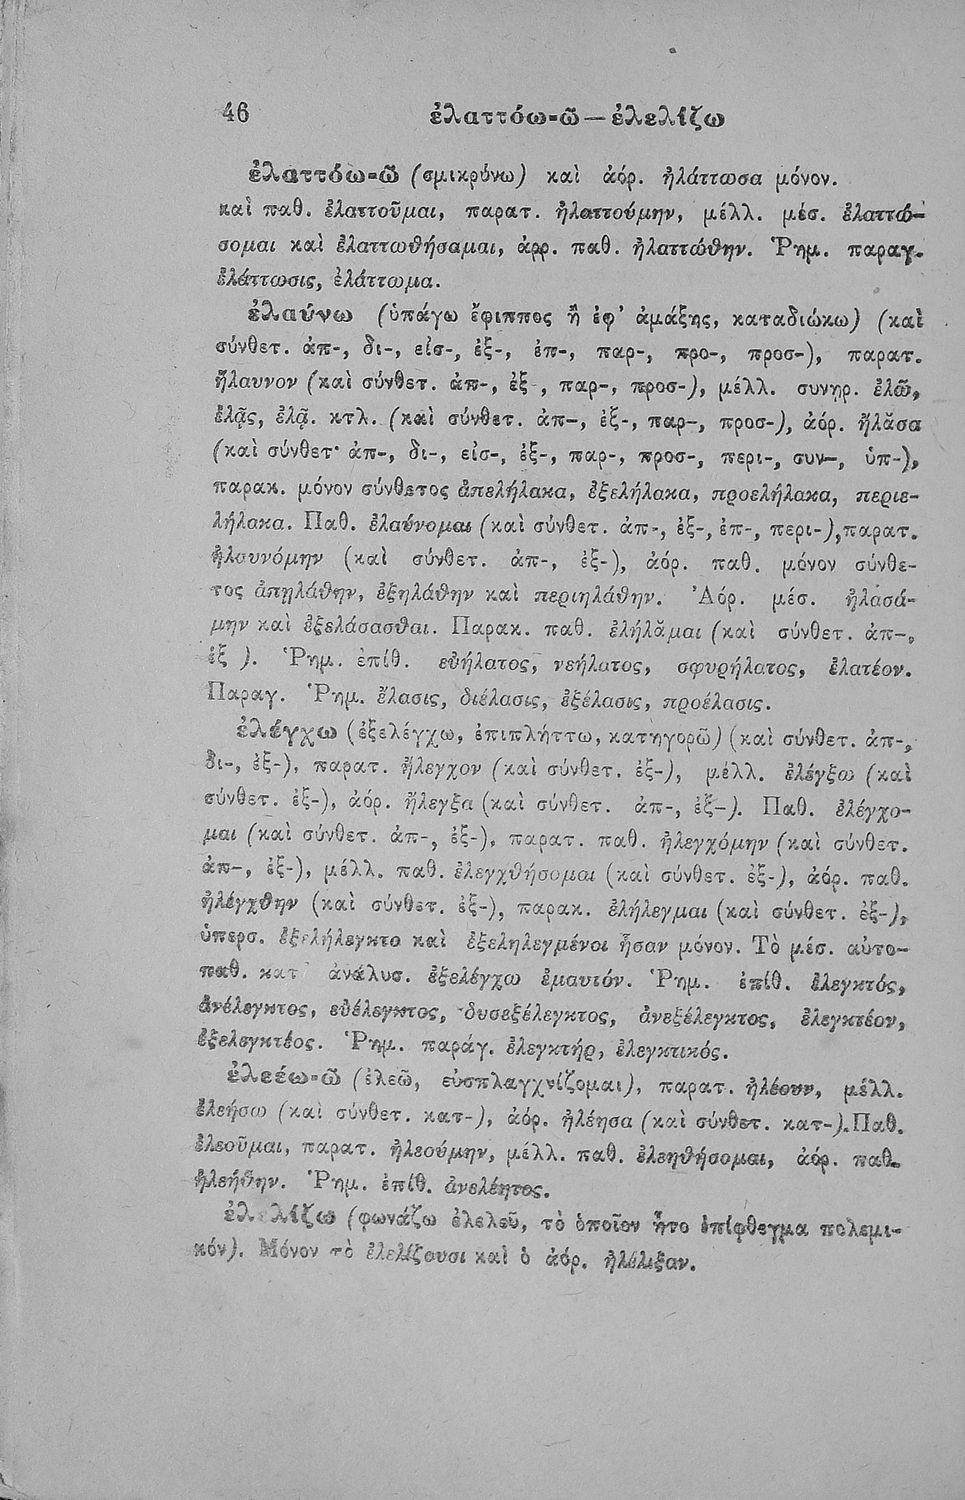 46
ἐλαττόω-ῶ — ἐλελίζω
ἐλαττόω-ῶ (σμικρύνω) καὶ ἀόρ. ἠλάττωσα μόνον.
καὶ παθ. ἐλαττοῦμαι, παρατ. ἠλαττούμην, μέλλ. μέσ. ἐλαττώ-
σομαι καὶ ἐλαττωθήσαμαι, ἀρρ. παθ. ἠλαττώθην. Ῥημ. παραγ.
ἐλάττωσις, ἐλάττωμα.
ἐλαύνω (ὑπάγω ἔφιππος ἢ ἐφ' ἁμάξης, καταδιώκω) (καὶ
σύνθετ. ἀπ-, δι-, εἰσ-, ἐξ-, ἐπ-, παρ-, προ-, προσ-), παρατ.
ἤλαυνον (καὶ σύνθετ. ἀπ-, ἐξ-, παρ-, προσ-), μέλλ. συνῃρ. ἐλῶ,
ἐλᾷς, ἐλᾷ. κτλ. (καὶ σύνθετ. ἀπ-, ἐξ-, παρ-, προσ-), ἀόρ. ἤλᾰσα
(καὶ σύνθετ· ἀπ-, δι-, εἰσ-, ἐξ-, παρ-, προσ-, περι-, συν-, ὑπ-),
παρακ. μόνον σύνθετος ἀπελήλακα, ἐξελήλακα, προελήλακα, περιε-
λήλακα. Παθ. ἐλαύνομαι (καὶ σύνθετ. ἀπ-, ἐξ-, ἐπ-, περι-), παρατ.
ἠλαυνόμην (καὶ σύνθετ. ἀπ-, ἐξ-), ἀόρ. παθ. μόνον σύνθε-
τος ἀπηλάθην, ἐξηλάθην καὶ περιηλάθην. Ἀόρ. μέσ. ἠλασά-
μην καὶ ἐξελάσασθαι. Παρακ. παθ. ἐλήλᾰμαι (καὶ σύνθετ. ἀπ-,
ἐξ ). Ῥημ. ἐπίθ. εὐήλατος, νεήλατος, σφυρήλατος, ἐλατέον.
Παραγ. Ῥημ. ἔλασις, διέλασις, ἐξέλασις, προέλασις.
ἐλέγχω (ἐξελέγχω, ἐπιπλήττω, κατηγορῶ) (καὶ σύνθετ. ἀπ-,
δι-, ἐξ-), παρατ. ἤλεγχον (καὶ σύνθετ. ἐξ-), μέλλ. ἐλέγξω (καὶ
σύνθετ. ἐξ-), ἀόρ. ἤλεγξα (καὶ σύνθετ. ἀπ-, ἐξ-). Παθ. ἐλέγχο-
μαι (καὶ σύνθετ. ἀπ-, ἐξ-), παρατ. παθ. ἠλεγχόμην (καὶ σύνθετ.
ἀπ-, ἐξ-), μέλλ. παθ. ἐλεγχθήσομαι (καὶ σύνθετ. ἐξ-), ἀόρ. παθ.
ἠλέγχθην (καὶ σύνθετ. ἐξ-), παρακ. ἐλήλεγμαι (καὶ σύνθετ. ἐξ-),
ὑπερσ. ἐξελήλεγκτο καὶ ἐξεληλεγμένοι ἦσαν μόνον. Τὸ μέσ. αὐτο-
παθ. κατ' ἀνάλυσ. ἐξελέγχω ἐμαυτόν. Ῥημ. ἐπίθ. ἐλεγκτός,
ἀνέλεγκτος, εὐέλεγκτος, δυσεξέλεγκτος, ἀνεξέλεγκτος, ἐλεγκτέον,
ἐξελεγκτέος. Ῥημ. παράγ. ἐλεγκτήρ, ἐλεγκτικός.
ἐλεέω-ῶ (ἐλεῶ, εὐσπλαγχνίζομαι), παρατ. ἠλέουν, μέλλ.
ἐλεήσω (καὶ σύνθετ. κατ-), ἀόρ. ἠλέησα (καὶ σύνθετ. κατ-). Παθ.
ἐλεοῦμαι, παρατ. ἠλεούμην, μέλλ. παθ. ἐλεηθήσομαι, ἀόρ. παθ.
ἠλεήθην. Ῥημ. ἐπίθ. ἀνελέητος.
ἐλελίζω (φωνάζω ἐλελεῦ, τὸ ὁποῖον ἦτο ἐπίφθεγμα πολεμι-
κόν). Μόνον τὸ ἐλελίζουσι καὶ ὁ ἀόρ. ἠλέλιξαν.